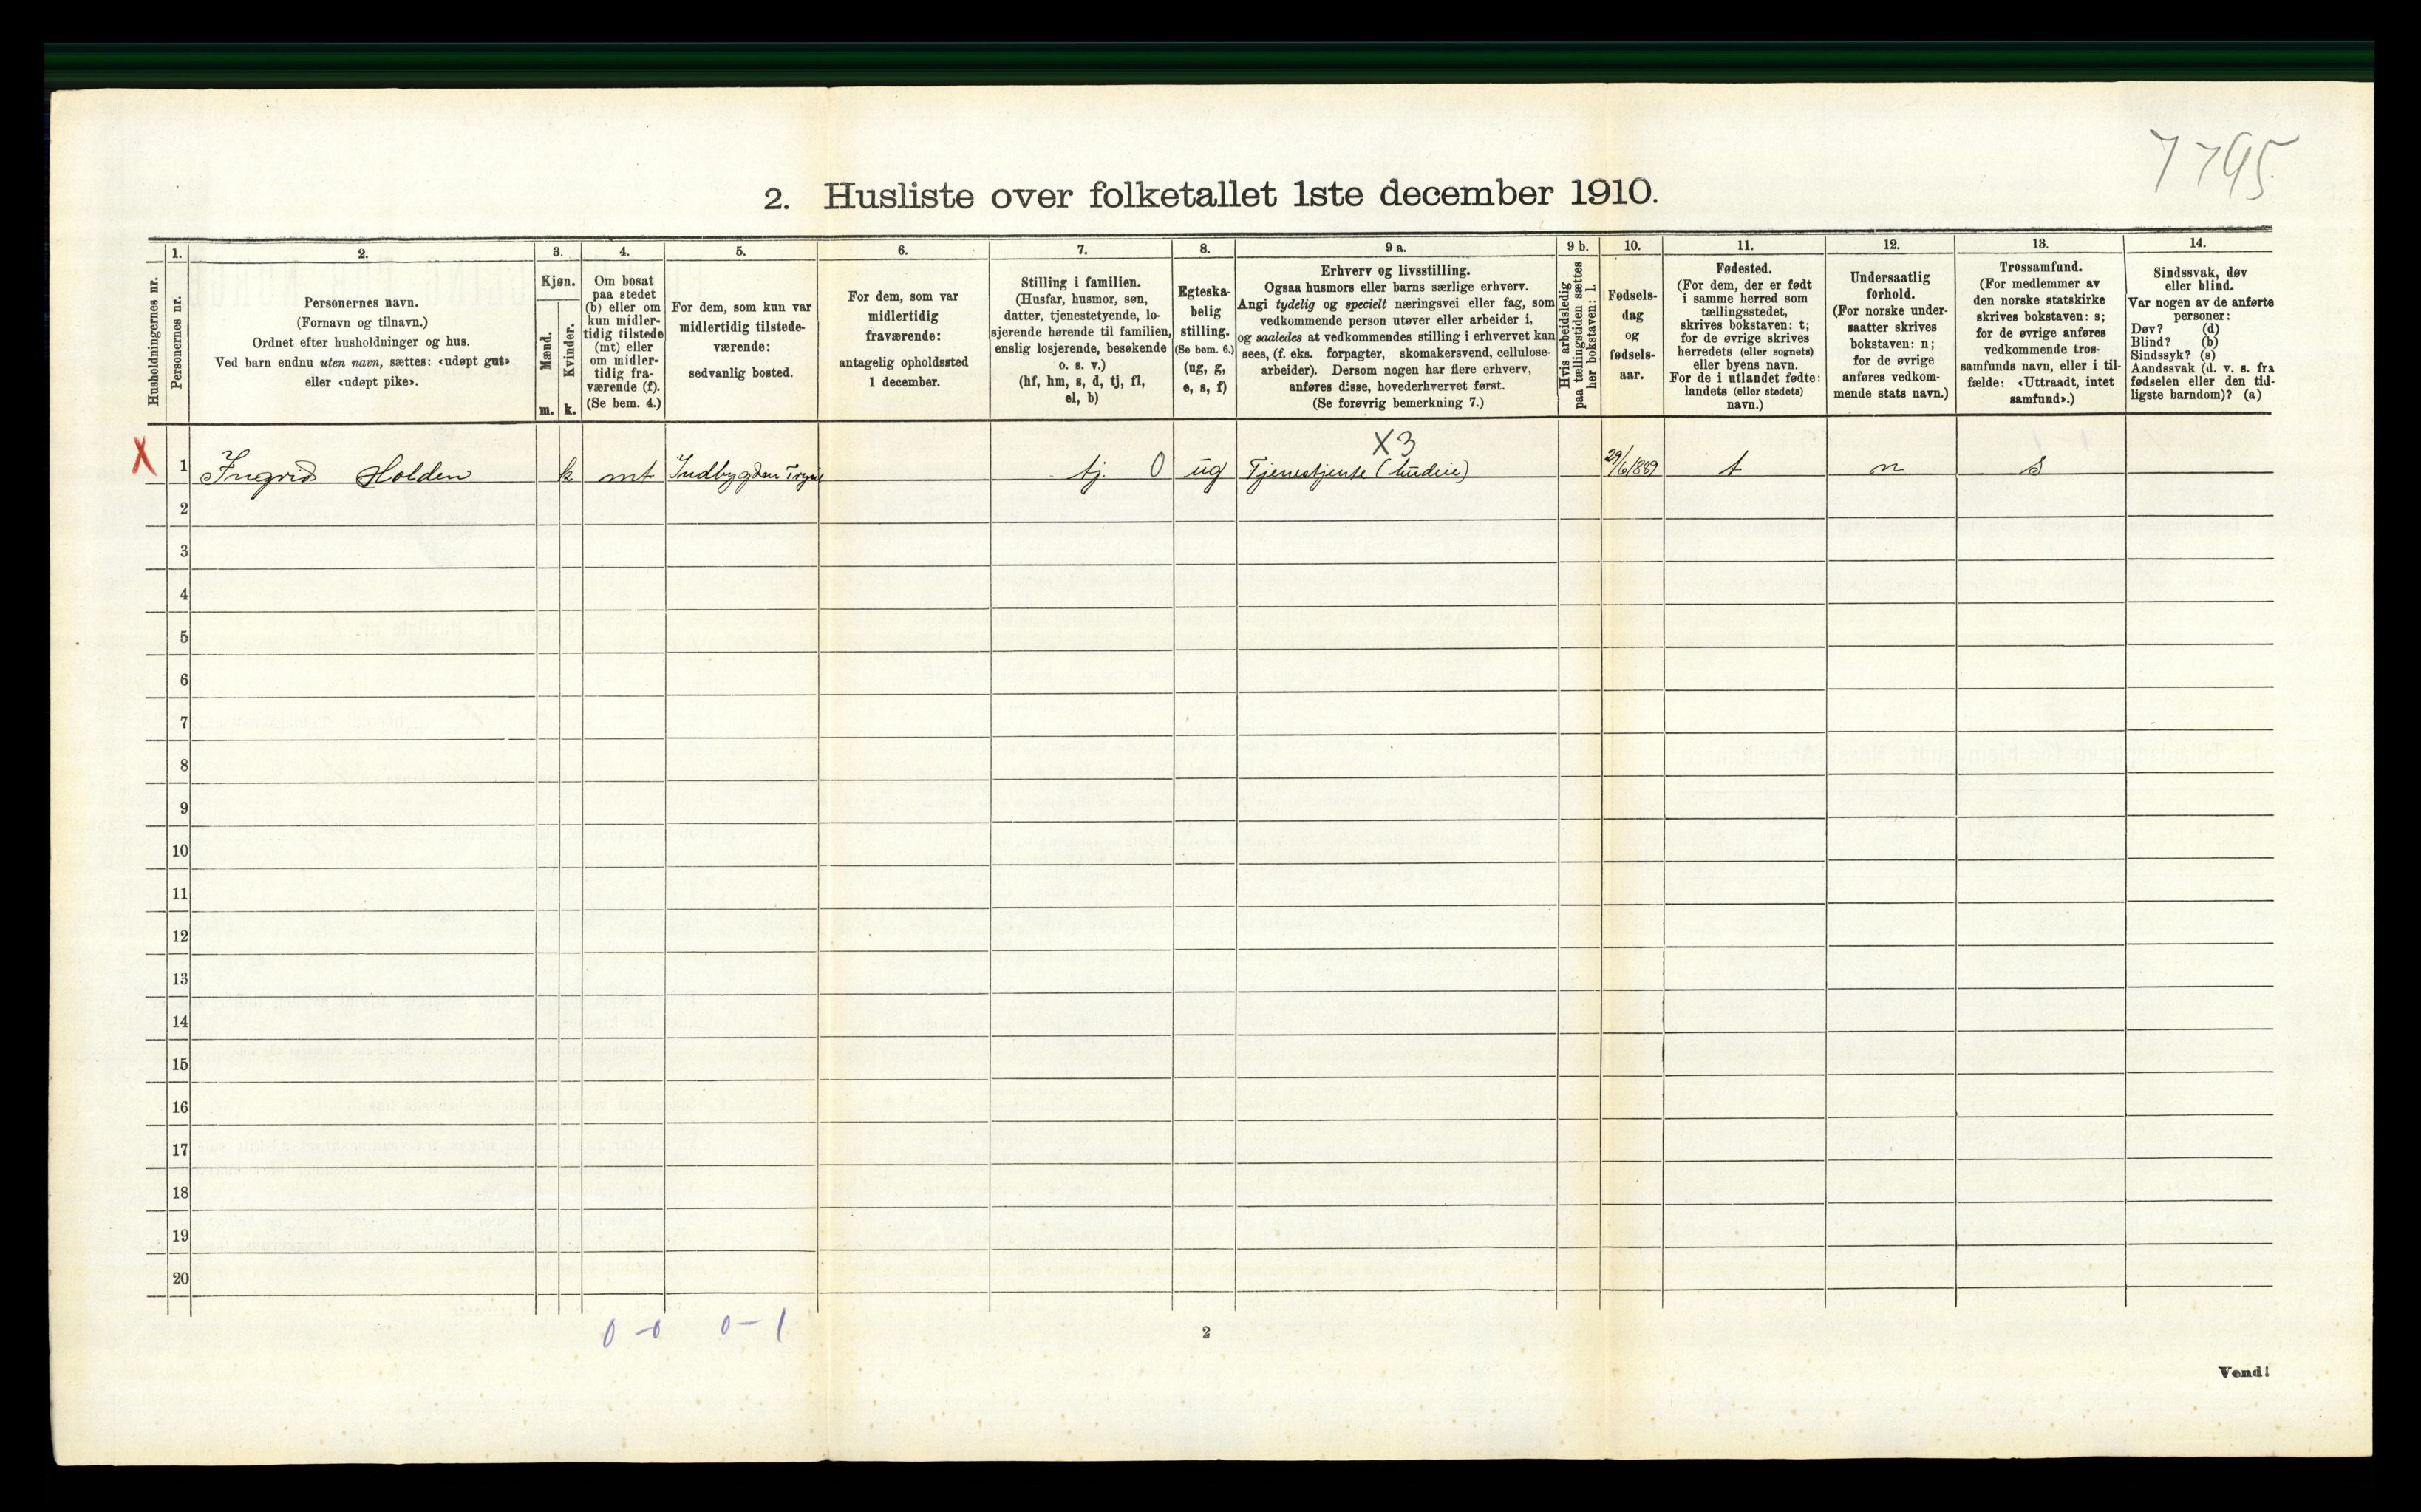 7795
2. Husliste over folketallet 1ste december 1910.
Husholdningernes nr.
1.
Personernes nr.
2.
Personernes navn.
(Fornavn og tilnavn.)
Ordnet efter husholdninger og hus.
Ved barn endnu uten navn, sættes: «udøpt gut»
eller «udøpt pike».
3.
Kjøn.
Mænd.
Kvinder.
m. k.
4.
Om bosat
paa stedet
(b) eller om
kun midler-
tidig tilstede
(mt) eller
om midler-
tidig fra-
værende (f).
(Se bem. 4.)
5.
For dem, som kun var
midlertidig tilstede-
værende:
sedvanlig bosted.
6.
For dem, som var
midlertidig
fraværende:
antagelig opholdssted
1 december.
7.
Stilling i familien.
(Husfar, husmor, søn,
datter, tjenestetyende, lo-
sjerende hørende til familien,
enslig losjerende, besøkende
o. s. v.)
(hf, hm, s, d, tj, fl,
el, b)
8.
Egteska-
belig
stilling.
(Se bem. 6.)
(ug, g,
e, s, f)
9 a.
Erhverv og livsstilling.
Ogsaa husmors eller barns særlige erhverv.
Angi tydelig og specielt næringsvei eller fag, som
vedkommende person utøver eller arbeider i,
og saaledes at vedkommendes stilling i erhvervet kan
sees, (f. eks. forpagter, skomakersvend, cellulose-
arbeider). Dersom nogen har flere erhverv,
anføres disse, hovederhvervet først.
(Se forøvrig bemerkning 7.)
9 b.
Hvis arbeidsledig
paa tællingstiden sættes
her bokstaven: l.
10.
Fødsels-
dag
og
fødsels-
aar.
11.
Fødested.
(For dem, der er født
i samme herred som
tællingsstedet,
skrives bokstaven: t;
for de øvrige skrives
herredets (eller sognets)
eller byens navn.
For de i utlandet fødte:
landets (eller stedets)
navn.)
12.
Undersaatlig
forhold.
(For norske under-
saatter skrives
bokstaven: n;
for de øvrige
anføres vedkom-
mende stats navn.)
13.
Trossamfund.
(For medlemmer av
den norske statskirke
skrives bokstaven: s;
for de øvrige anføres
vedkommende tros-
samfunds navn, eller i til-
fælde: «Uttraadt, intet
samfund».)
14.
Sindssvak, døv
eller blind.
Var nogen av de anførte
personer:
Døv? (d)
Blind? (b)
Sindssyk? (s)
Aandssvak (d. v. s. fra
fødselen eller den tid-
ligste barndom)? (a)
X3
X 1 Ingrid Holden k mt Indbygden Trysil tj. 0 ug Tjenestjente 29/6 1889 t n s
2
3
4
5
6
7
8
9
10
11
12
13
14
15
16
17
18
19
20
0-0 0-1
2
Vend!